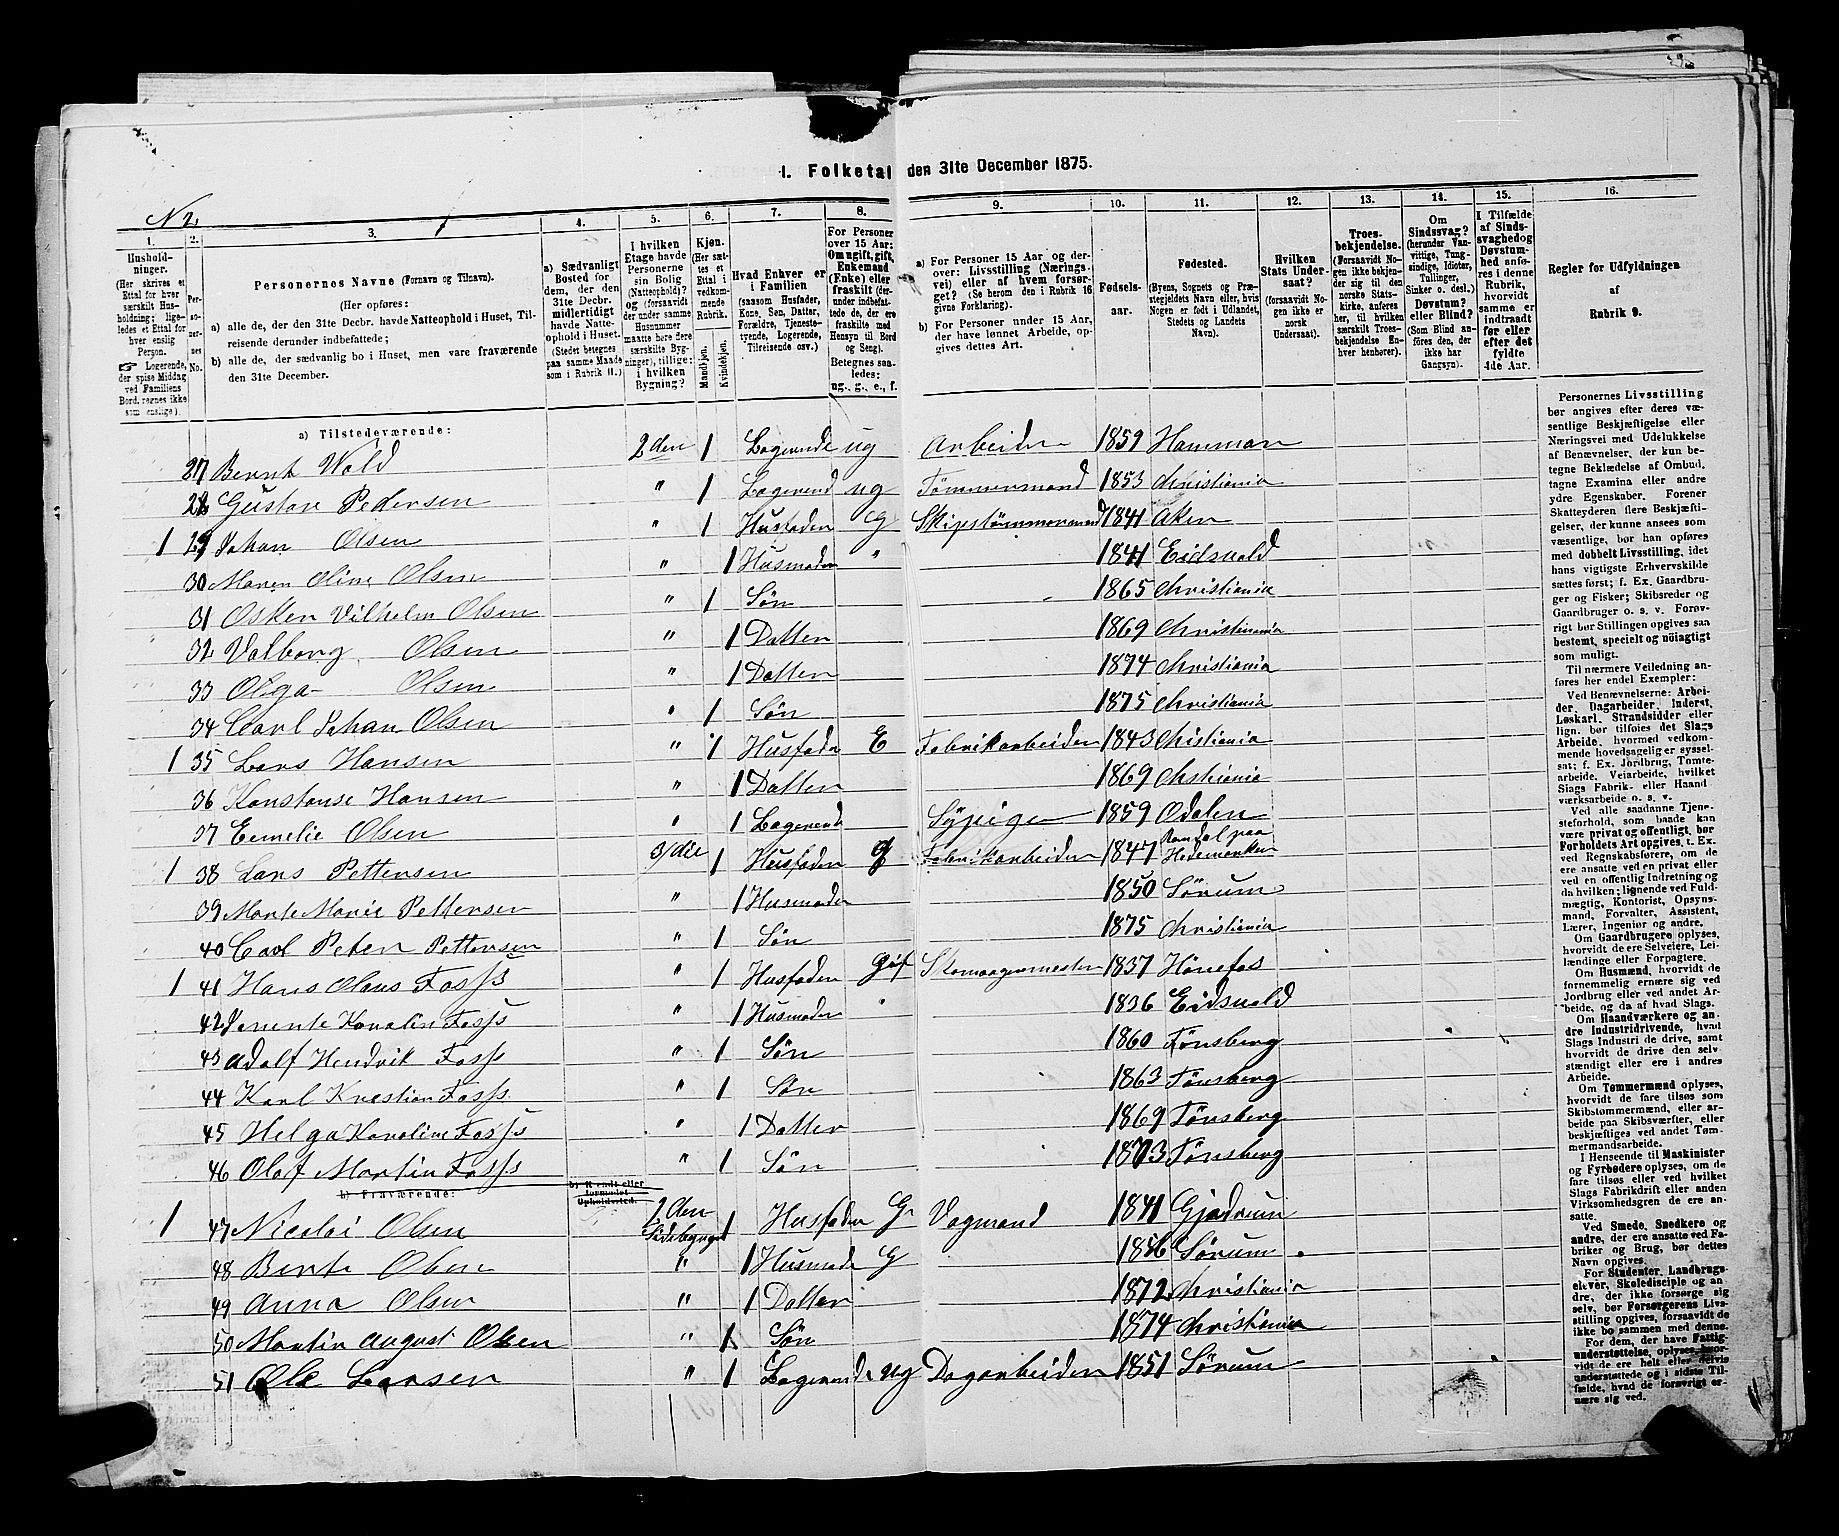 I. Folketal den 31te December 1875.
N 2,
1. 2. 3. 4. 5. 6. 7. 8. 9. 10. 11. 12. 13. 14. 15. 16.
Hushold-
ninger.
(Her skrives et
Ettal for hver
særskilt Hus-
holdning; lige-
ledes et Ettal for
hver enslig
Person.
☞ Logerende,
der spise Middag
ved Familiens
Bord, regnes ikke
som enslige).
Per-
so-
ner-
nes
No.
Personernes Navne (Fornavn og Tilnavn).
(Her opføres:
a) alle de, der den 31te Decbr. havde Natteophold i Huset, Til-
reisende derunder indbefattede;
b) alle de, der sædvanlig bo i Huset, men vare fraværende
den 31te December.
a) Sædvanligt
Bosted for
dem, der den
31te Decbr.
midlertidigt
havde Natte-
ophold i Huset.
(Stedet betegnes
paa samme Maade
som i Rubrik 11.)
I hvilken
Etage havde
Personerne
sin Bolig
(Natteophold)?
og (forsaavidt
der under samme
Husnummer
maatte høre flere
særskilte Byg-
ninger), tillige:
i hvilken
Bygning?
Kjøn.
(Her sæt-
tes et
Ettal i
vedkom-
mende
Rubrik.
Mandkjøn.
Kvindekjøn.
Hvad Enhver er
i Familien
(saasom Husfader,
Kone, Søn, Datter,
Forældre, Tjeneste-
tyende, Logerende,
Tilreisende osv.)
For Personer
over 15 Aar:
Om ugift, gift,
Enkemand
(Enke) eller
fraskilt (der-
under indbefat-
tede de, der ere
fraskilte med
Hensyn til Bord
og Seng).
Betegnes saa-
ledes:
ug., g., e., f.
a) For Personer 15 Aar og der-
over: Livsstilling (Nærings-
vei) eller af hvem forsør-
get? (Se herom den i Rubrik 16
givne Forklaring).
b) For Personer under 15 Aar,
der have lønnet Arbeide, op-
gives dettes Art.
Fødsels-
aar.
Fødested.
(Byens, Sognets og Præ-
stegjeldets Navn eller, hvis
Nogen er født i Udlandet,
Stedets og Landets
Navn).
Hvilken
Stats Under-
saat?
(forsaavidt No-
gen ikke er
norsk
Undersaat).
Troes-
bekjendelse.
(Forsaavidt No-
gen ikke bekjen-
der sig til den
norske Stats-
kirke, anføres
her, til hvilken
særskilt Troes-
bekjendelse En-
hver henhører).
Om
Sindssvag?
(herunder Van-
vittige, Tung-
sindige, Idioter,
Tullinger,
Sinker o. desl.)
Døvstum?
eller Blind?
(Som Blind an-
føres den, der
ikke har
Gangsyn).
I Tilfælde
af Sinds-
svaghed og
Døvstum-
hed anfø-
res i denne
Rubrik,
hvorvidt
samme er
indtraadt
før eller
efter det
fyldte
4de Aar.
Regler for Udfyldningen
af
Rubrik 9.
a) Tilstedeværende:
27 Bernt Wold 2den 1 Logerende ug Arbeider 1859 Hammar
28 Gustav Pedersen " 1 Logerend ug Tømmermand 1853 Christiania
1 29 Johan Olsen " 1 Husfader G Skipstømmermand 1841 Aker
30 Maren Oline Olsen " 1 Husmoder " 1841 Eidsvold
31 Osker Vilhelm Olsen " 1 Søn 1865 Christiania
32 Valborg Olsen " 1 Datter 1869 Christiania
33 Olga Olsen " 1 Datter 1874 Christiania
34 Carl Johan Olsen " 1 Søn 1875 Christiania
1 35 Lars Hansen " 1 Husfader E Fabrikarbeider 1843 Christiania
36 Konstanse Hansen " 1 Datter 1869 Christiania
37 Eemelie Olsen " 1 Logerend Sypige 1859 Odalen
1 38 Lars Pettersen 3/die 1 Husfader g Fabrikarbeider 1847 Romdal paa Hedemarken
39 Marte Marie Pettersen " 1 Husmoder 1850 Sørum
40 Carl Peter Pettersen " 1 Søn 1875 Christiania
1 41 Hans Olaus Fosss " 1 Husfader Gif Skomagermester 1837 Hønefos
42 Karoline Fosss " 1 Husmoder " 1836 Eidsvold
43 Adolf Hendrik Fosss " 1 Søn 1860 Tønsberg
44 Karl Kristian Fosss " 1 Søn 1863 Tønsberg
45 Helga Karoline Fosss " 1 Datter 1869 Tønsberg
46 Olaf Martin Fosss " 1 Søn 1873 Tønsberg
b) Fraværende:
b) Kjendt eller
formodet
Opholdssted.
1 47 Nicolai Olsen 2den Sidebygn 1 Husfader G Vogmand 1841 Gjedrum
48 Berte Olsen " 1 Husmode G 1846 Sørum
49 Anna Olsen " 1 Datter 1872 Christiania
50 Martin August Olsen " 1 Søn 1874 Christiania
51 Ole Larsen " 1 Logerende ug Dagarbeider 1851 Sørum
Personernes Livsstilling
bør angives efter deres væ-
sentlige Beskjæftigelse eller
Næringsvei med Udelukkelse
af Benævnelser, der kun be-
tegne Beklædelse af Ombud,
tagne Examina eller andre
ydre Egenskaber. Forener
Skatteyderen flere Beskjæfti-
gelser, der kunne ansees som
væsentlige, bør han opføres
med dobbelt Livsstilling, idet
hans vigtigste Erhvervskilde
sættes først; f. Ex. Gaardbru-
ger og Fisker; Skibsreder og
Gaardbruger o. s. v. Forøv-
rigt bør Stillingen opgives saa
bestemt, specielt og nöiagtigt
som muligt.
Til nærmere Veiledning an-
føres her endel Exempler:
Ved Benævnelserne: Arbei-
der, Dagarbeider, Inderst,
Løskarl, Strandsidder eller
lign. bør tilføies det Slags
Arbeide, hvormed vedkom-
mende hovedsagelig er syssel-
sat; f. Ex. Jordbrug, Tomte-
arbeide, Veiarbeide, hvilket
Slags Fabrik- eller Haand
værksarbeide o. s. v.
Ved alle saadanne Tjene-
steforhold, som baade kan
være privat og offentligt, bør
Forholdets Art opgives, t. Ex.
ved Regnskabsførere, om de
ere ansatte ved en privat eller
ved en offentlig Indretning og
da hvilken; lignende ved Fuld-
mægtig, Kontorist, Opsyns-
mand, Forvalter, Assistent,
Lærer, Ingeniør og andre.
Om Gaardbrugere oplyses,
hvorvidt de ere Selveiere, Lei-
lændinge eller Forpagtere.
Om Husmænd, hvorvidt de
fornemmelig ernære sig ved
Jordbrug eller ved andet Ar-
beide, og da af hvad Slags.
Om Haandværkere og an-
dre Industridrivende, hvad
Slags Industri de drive, samt
hvorvidt de drive den selv-
stændigt eller ere i andres
Arbeide.
Om Tømmermænd oplyses,
hvorvidt de fare tilsøs som
Skibstømmermænd, eller ar-
beide paa Skibsværfter, eller
beskjæftiges ved andet Tøm-
mermandsarbeide.
I Henseende til Maskinister
og Fyrbødere oplyses, om de
fare tilsøs eller ved hvilket
Slags Fabrikdrift eller anden
Virksomhedsgren de ere an-
satte.
Ved Smede, Snedkere og
andre, der ere ansatte ved Fa-
briker og Brug, bør dettes
Navn opgives.
For Studenter, Landbrugs-
elever, Skoledisciple og an-
dre, der ikke forsørge sig
selv, bør Forsørgerens Livs-
stilling opgives, forsaavidt de
ikke bo sammen med denne.
For dem, der have Fattig-
understøttelse, oplyses, hvor-
vidt de ere helt eller delvis
understøttede og i sidste Til-
fælde, hvad de forøvrigt er-
nære sig ved.